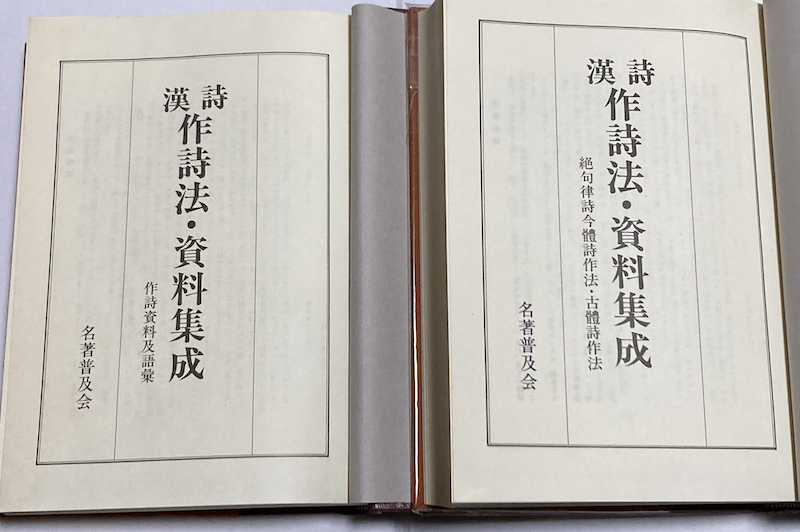 漢詩
作詩法・資料集成
絕句律詩今體詩作法・古體詩作法
名著普及会
漢詩
作詩法・資料集成
作詩資料及語彙
名著普及会